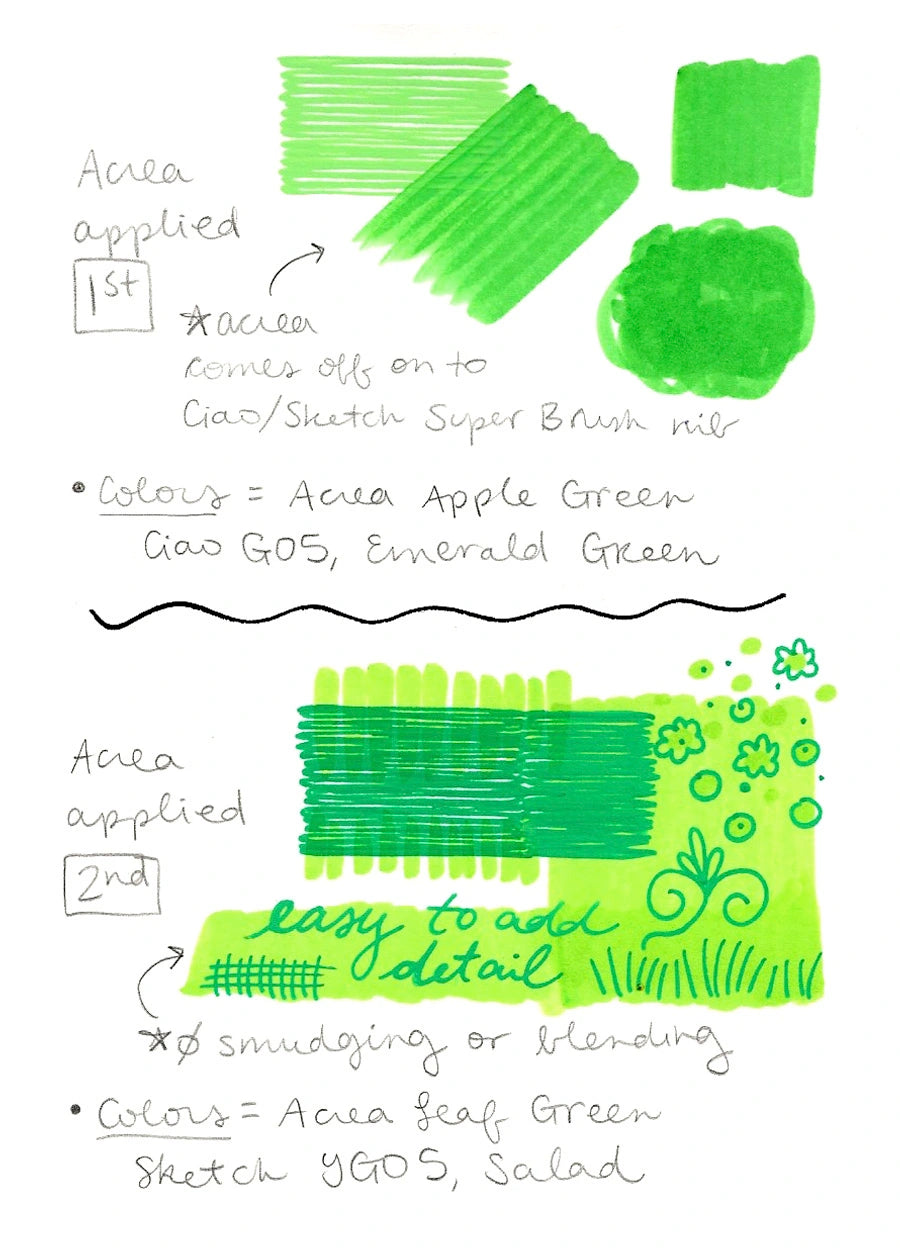 Acrea
applied
1st
*acrea
comes off on to
Ciao/Sketch Super Brush nib
• Colors = Acrea Apple Green
Ciao G05, Emerald Green
Acrea
applied
2nd
easy to add
detail
*ø smudging or blending
• Colors = Acrea Leaf Green
Sketch YG05, Salad